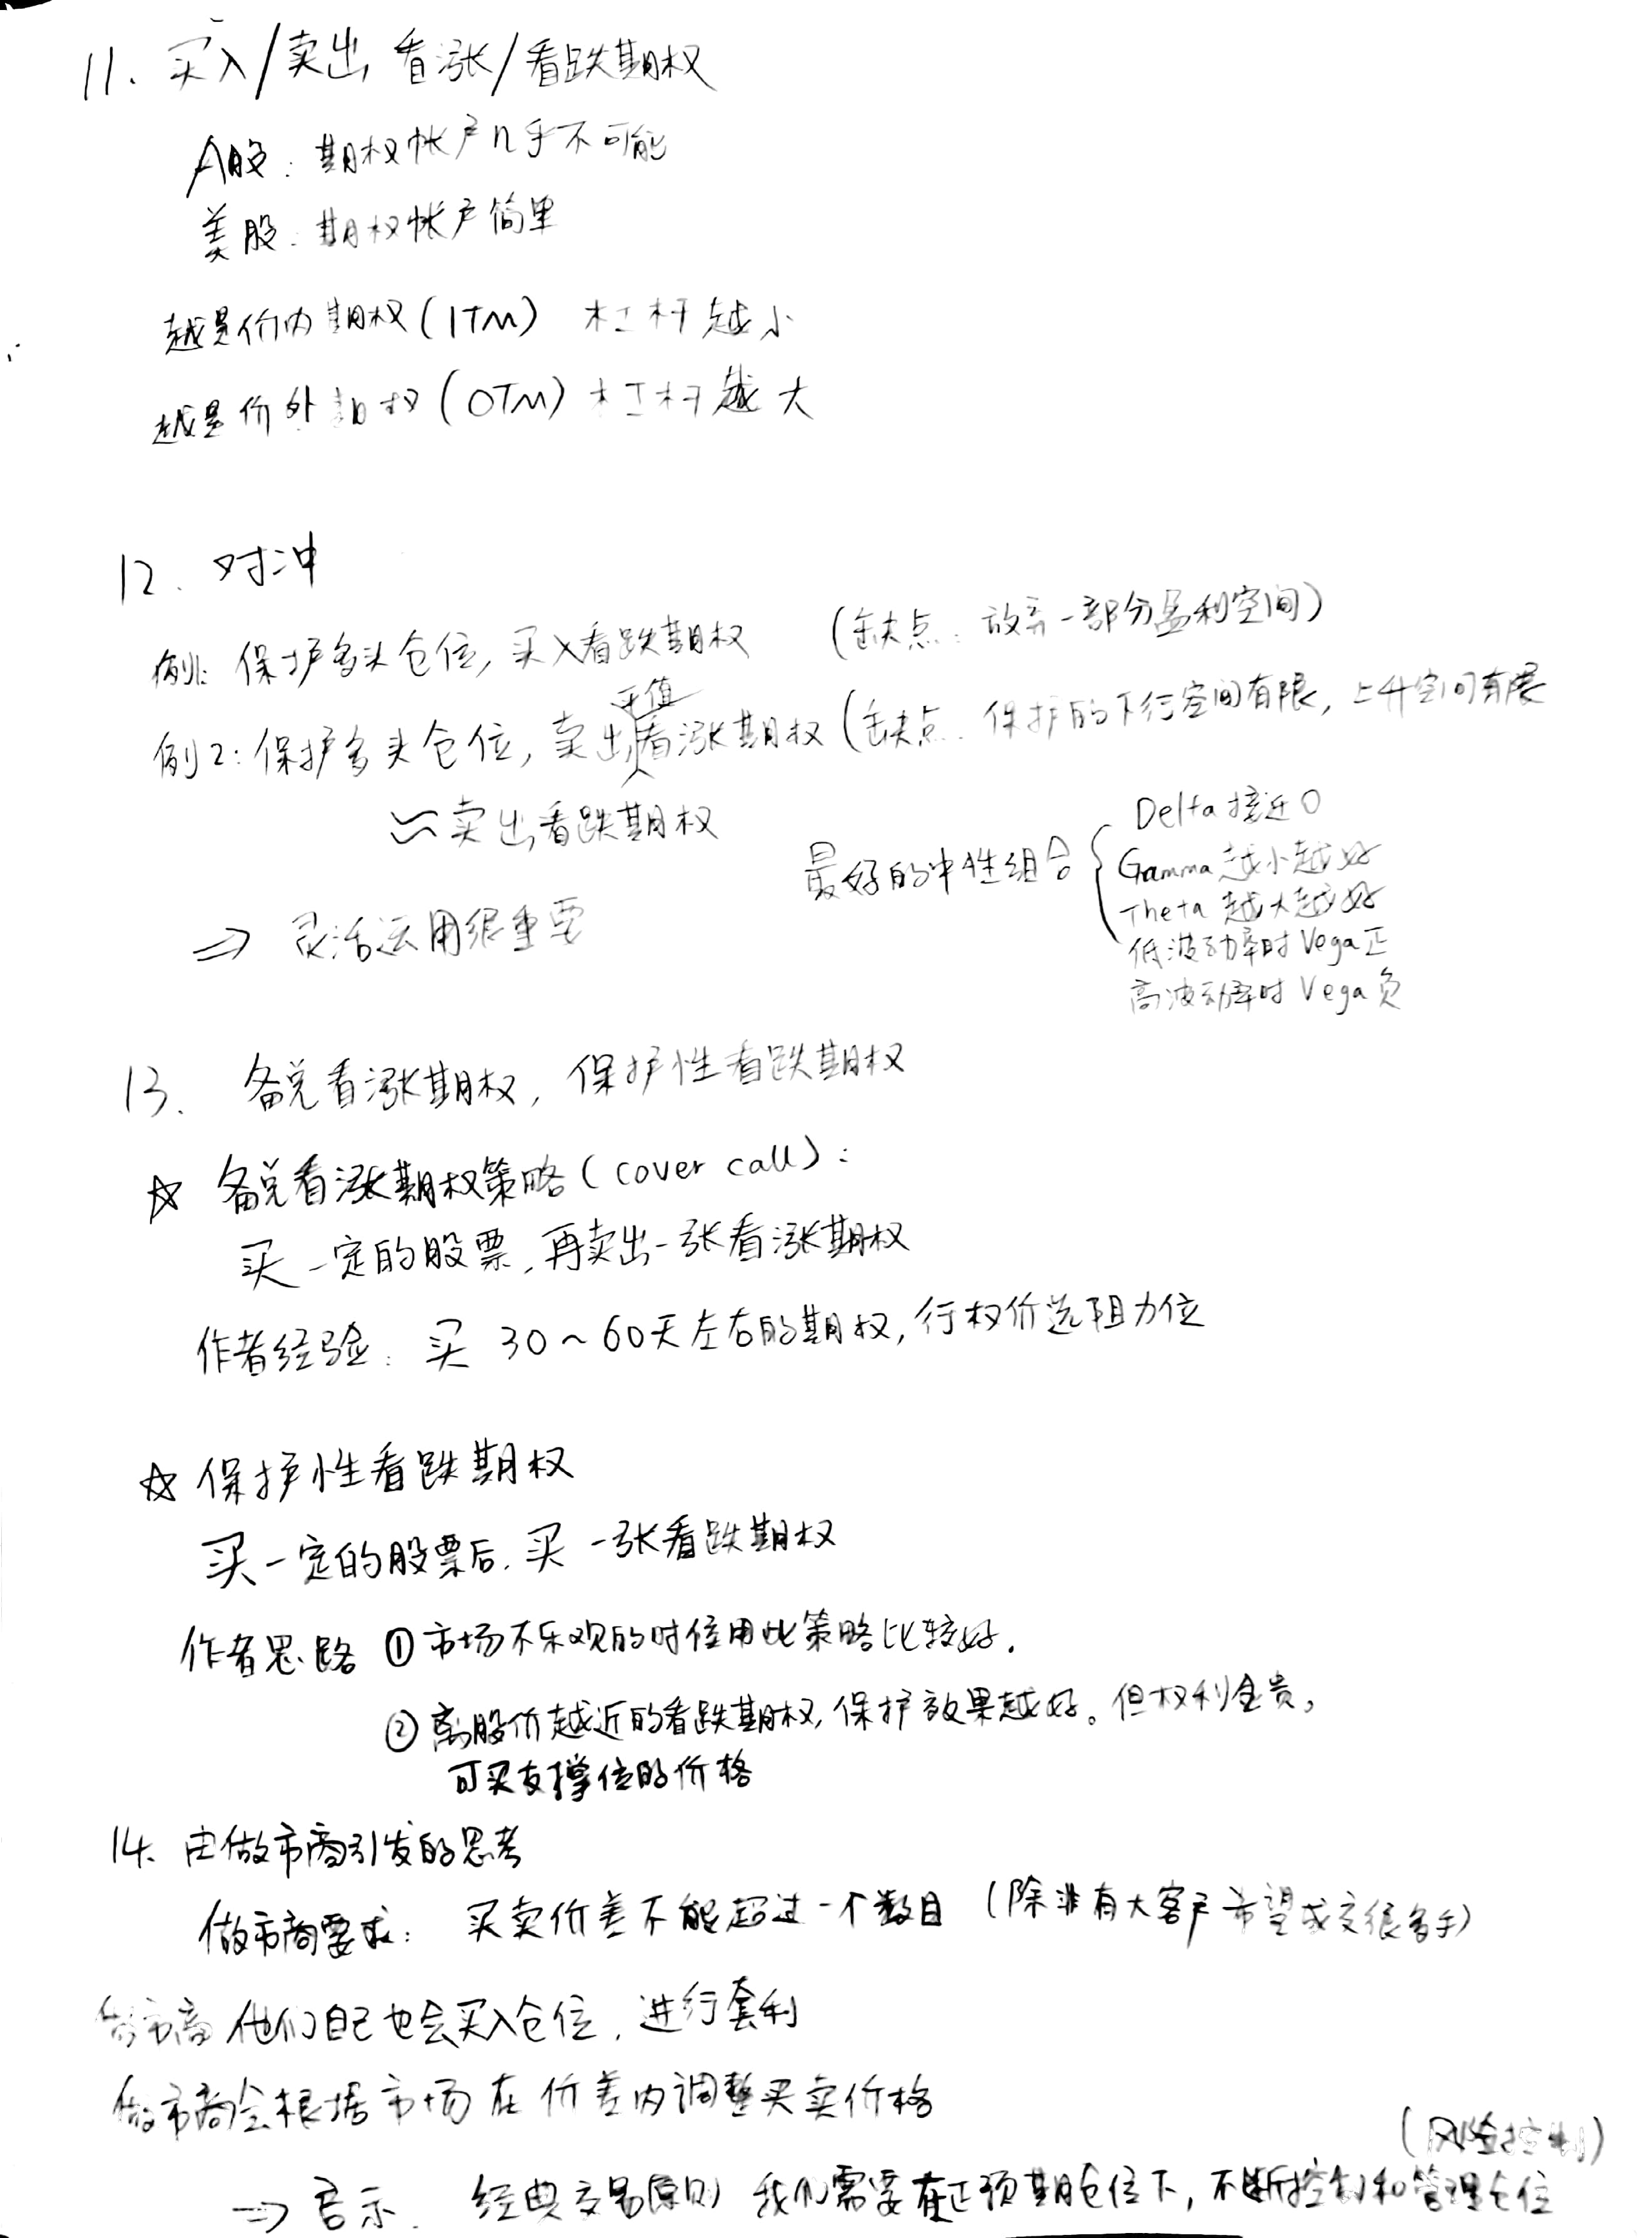 11. 买入/卖出 看涨/看跌期权
A股：期权帐户几乎不可能
美股：期权帐户简单
越是价内期权(ITM) 杠杆越小
越是价外期权(OTM) 杠杆越大
12. 对冲
例1: 保护多头仓位, 买入看跌期权 (缺点：放弃一部分盈利空间)
平值
例2: 保护多头仓位, 卖出看涨期权 (缺点. 保护的下行空间有限, 上升空间有限
≈卖出看跌期权
⇒ 灵活运用很重要
最好的中性组合 {
Delta 接近0
Gamma 越小越好
Theta 越大越好
低波动率时 Vega正
高波动率时 Vega负
13. 备兑看涨期权, 保护性看跌期权
☆ 备兑看涨期权策略(cover call):
买一定的股票, 再卖出一张看涨期权
作者经验：买 30~60天左右的期权, 行权价选阻力位
☆ 保护性看跌期权
买一定的股票后. 买一张看跌期权
作者思路 ① 市场不乐观的时候用此策略比较好.
② 离股价越近的看跌期权, 保护效果越好。但权利金贵,
可买支撑位的价格
14. 由做市商引发的思考
做市商要求： 买卖价差不能超过一个数目 (除非有大客户希望成交很多手)
做市商 他们自己也会买入仓位, 进行套利
做市商会根据市场在价差内调整买卖价格
(风险控制)
⇒ 启示. 经典交易原则 我们需要在正预期仓位下, 不断控制和管理仓位